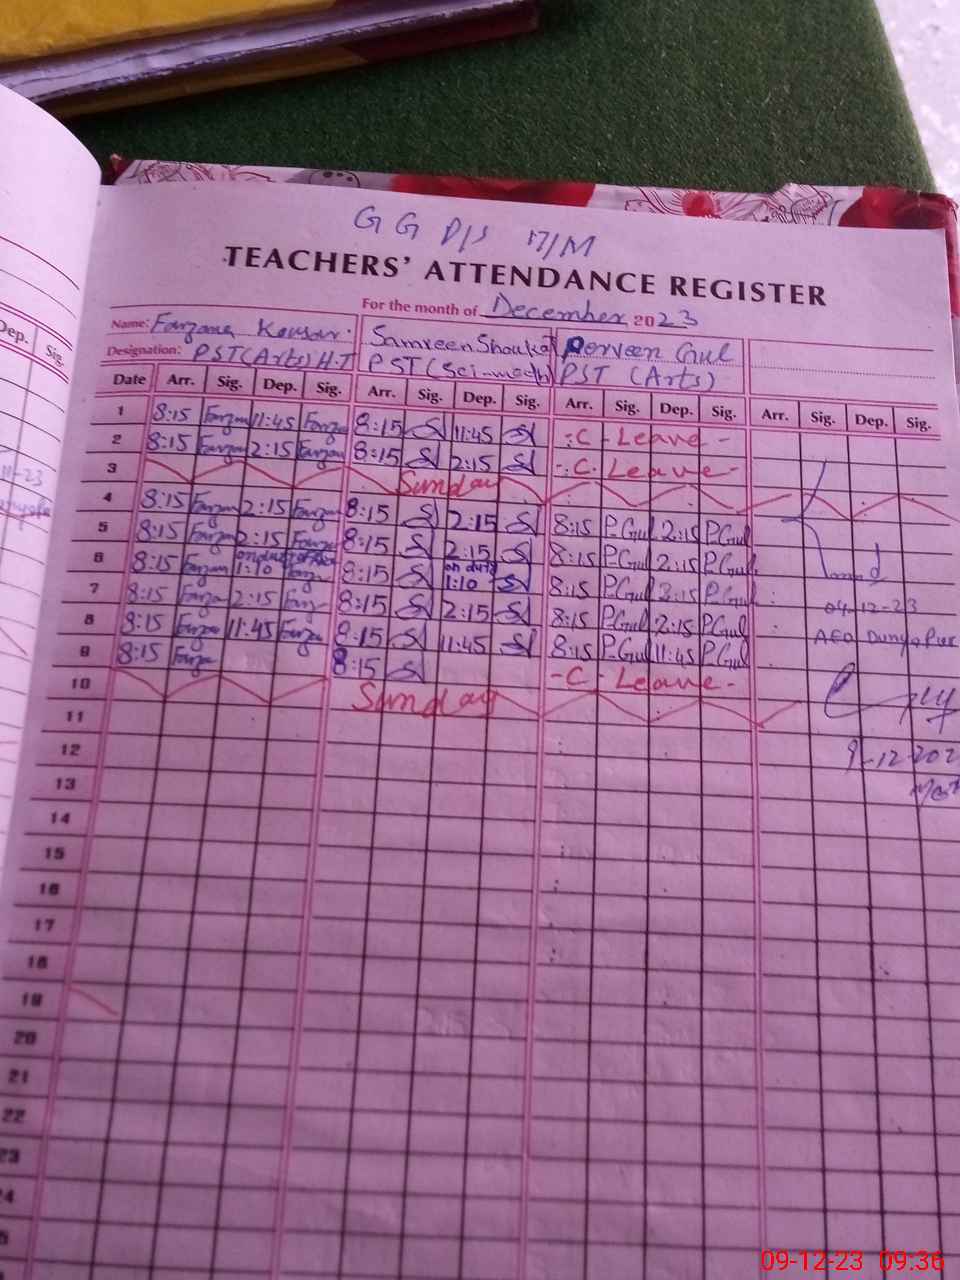 G G P/S 17/M
TEACHERS' ATTENDANCE REGISTER
For the month of December 2023
Name: Farzana Kousar. Samreen Shoukat Perveen Gul
Designation: PST (Arts) H.T PST (Sci-math) PST (Arts)
Date Arr. Sig. Dep. Sig. Arr. Sig. Dep. Sig. Arr. Sig. Dep. Sig. Arr. Sig. Dep. Sig.
1 8:15 Farzana 11:45 Farzana 8:15 11:45 -C-Leave-
2 8:15 Farzana 2:15 Farzana 8:15 2:15 -C-Leave-
3 Sunday
4 8:15 Farzana 2:15 Farzana 8:15 2:15 8:15 P.Gul 2:15 P.Gul
5 8:15 Farzana 2:15 Farzana 8:15 2:15 8:15 P.Gul 2:15 P.Gul
6 8:15 Farzana on duty 1:10 Farz 8:15 on duty 1:10 8:15 P.Gul 2:15 P.Gul
7 8:15 Farzana 2:15 Farz 8:15 2:15 8:15 P.Gul 2:15 P.Gul
8 8:15 Farzana 11:45 Farzana 8:15 11:45 8:15 P.Gul 11:45 P.Gul
9 8:15 Farzana 8:15 -C-Leave-
10 Sunday
11
12
13
14
15
16
17
18
19
20
21
22
23
04-12-23
AEO Dunyapur
9-12-202
Dep. Sig.
11-23
09-12-23 09:36